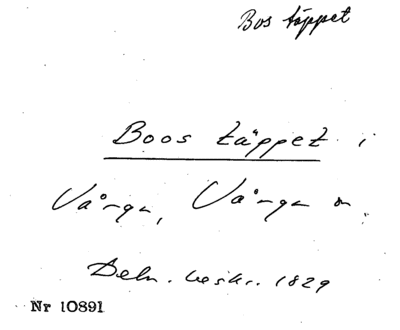 Bos täppet
Boos täppet i
Vånga, Vånga sn.
Deln. beskr. 1829
Nr 10891